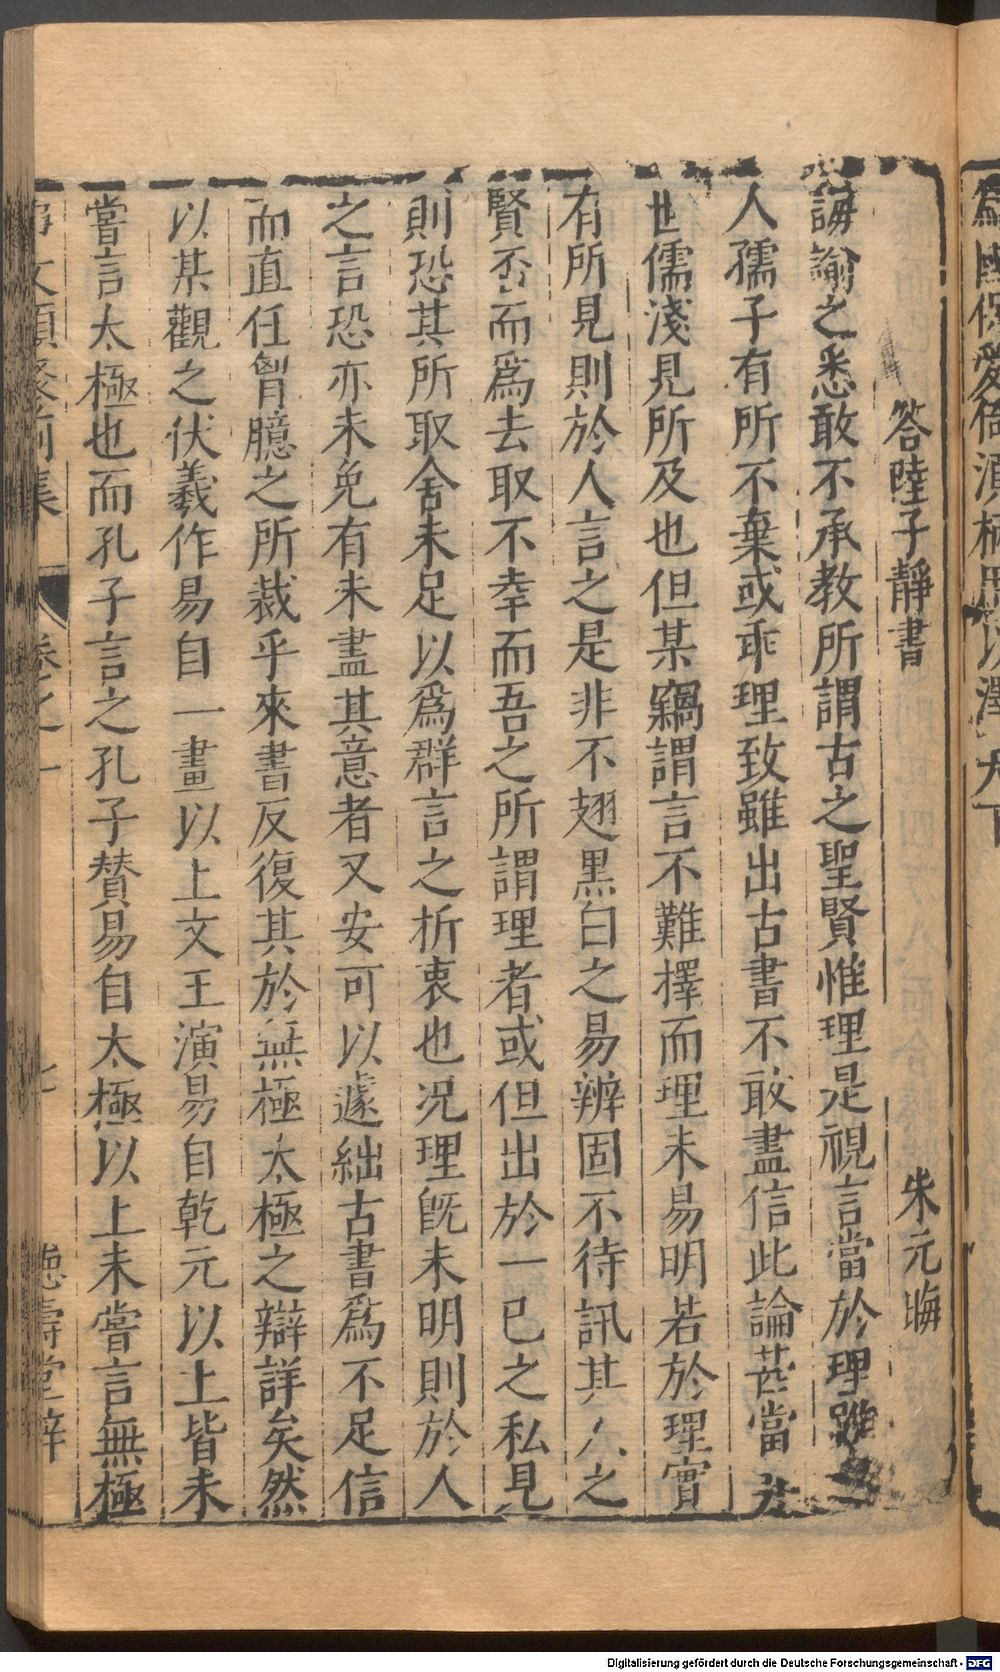 爲國保愛倚湏柄用以澤天下
答陸子靜書
朱元晦
誨諭之悉敢不承教所謂古之聖賢惟理是視言當於理雖
人孺子有所不棄或乖理致雖出古書不敢盡信此論甚當
世儒淺見所及也但某竊謂言不難擇而理未易明若於理實
有所見則於人言之是非不翅黒白之易辨固不待訊其人之
賢否而爲去取不幸而吾之所謂理者或但出於一已之私見
則恐其所取舍未足以爲群言之折衷也况理旣未明則於人
之言恐亦未免有未盡其意者又安可以遽絀古書爲不足信
而直任胷臆之所裁乎來書反復其於無極太極之辯詳矣然
以某觀之伏羲作易自一畫以上文王演易自乾元以上皆未
嘗言太極也而孔子言之孔子賛易自太極以上未嘗言無極
事文類聚前集 卷之一 七 德壽堂梓
Digitalisierung gefördert durch die Deutsche Forschungsgemeinschaft - DFG